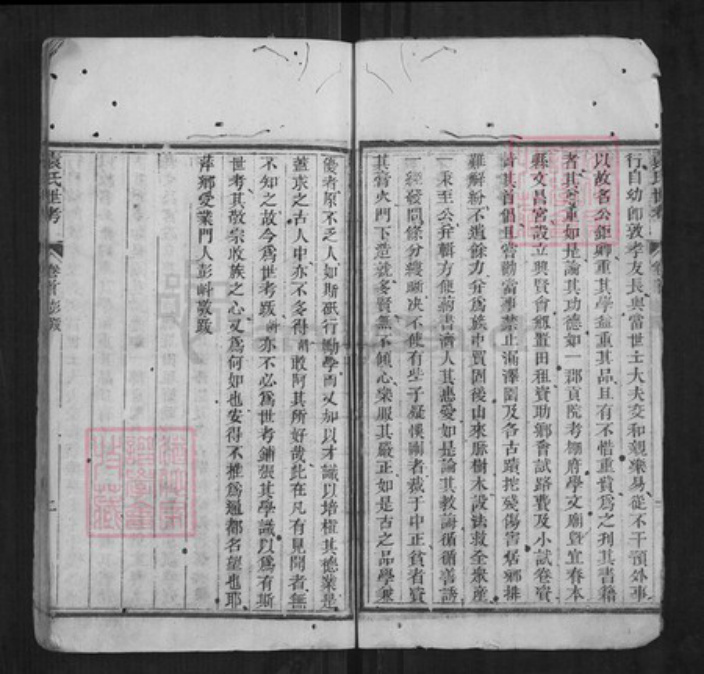 行自幼卽敦孝友長與當世士大夫交和藹樂易從不干預外事
以故名公鉅卿重其學益重其品且有不惜重貲爲之刋其書籍
者其尊重如是論其功德如一郡貢院考棚府學文廟曁宜春本
縣文昌宮設立興賢會甑置田租資助鄉會試路費及小試卷資
皆其首倡且嘗勸當事禁止滿澤園及各古蹟挖殘傷害居鄉排
難解紛不遺餘力弁爲族中買囘後山來脈樹木設法救全衆産
一秉至公弁輯方便葯書濟人其惠愛如是論其教誨循循善誘
一經發問條分縷晰决不使有些子疑悞剛者裁于中正貧者資
其膏火門下造就多賢無不傾心樂服其嚴正如是古之品學兼
優者原不乏人如斯砥行勵學而又加以才識以培植其德業是
蓋求之古人中亦不多得 敢阿其所好哉此在凡有見聞者無
不知之故今爲世考跋 亦不必爲世考鋪張其學識以爲有斯
世考其敬宗收族之心又爲何如也安得不推爲通都名望也耶
萍鄉愛業門人彭 敬跋
袁氏世考 卷首 彭跋 二